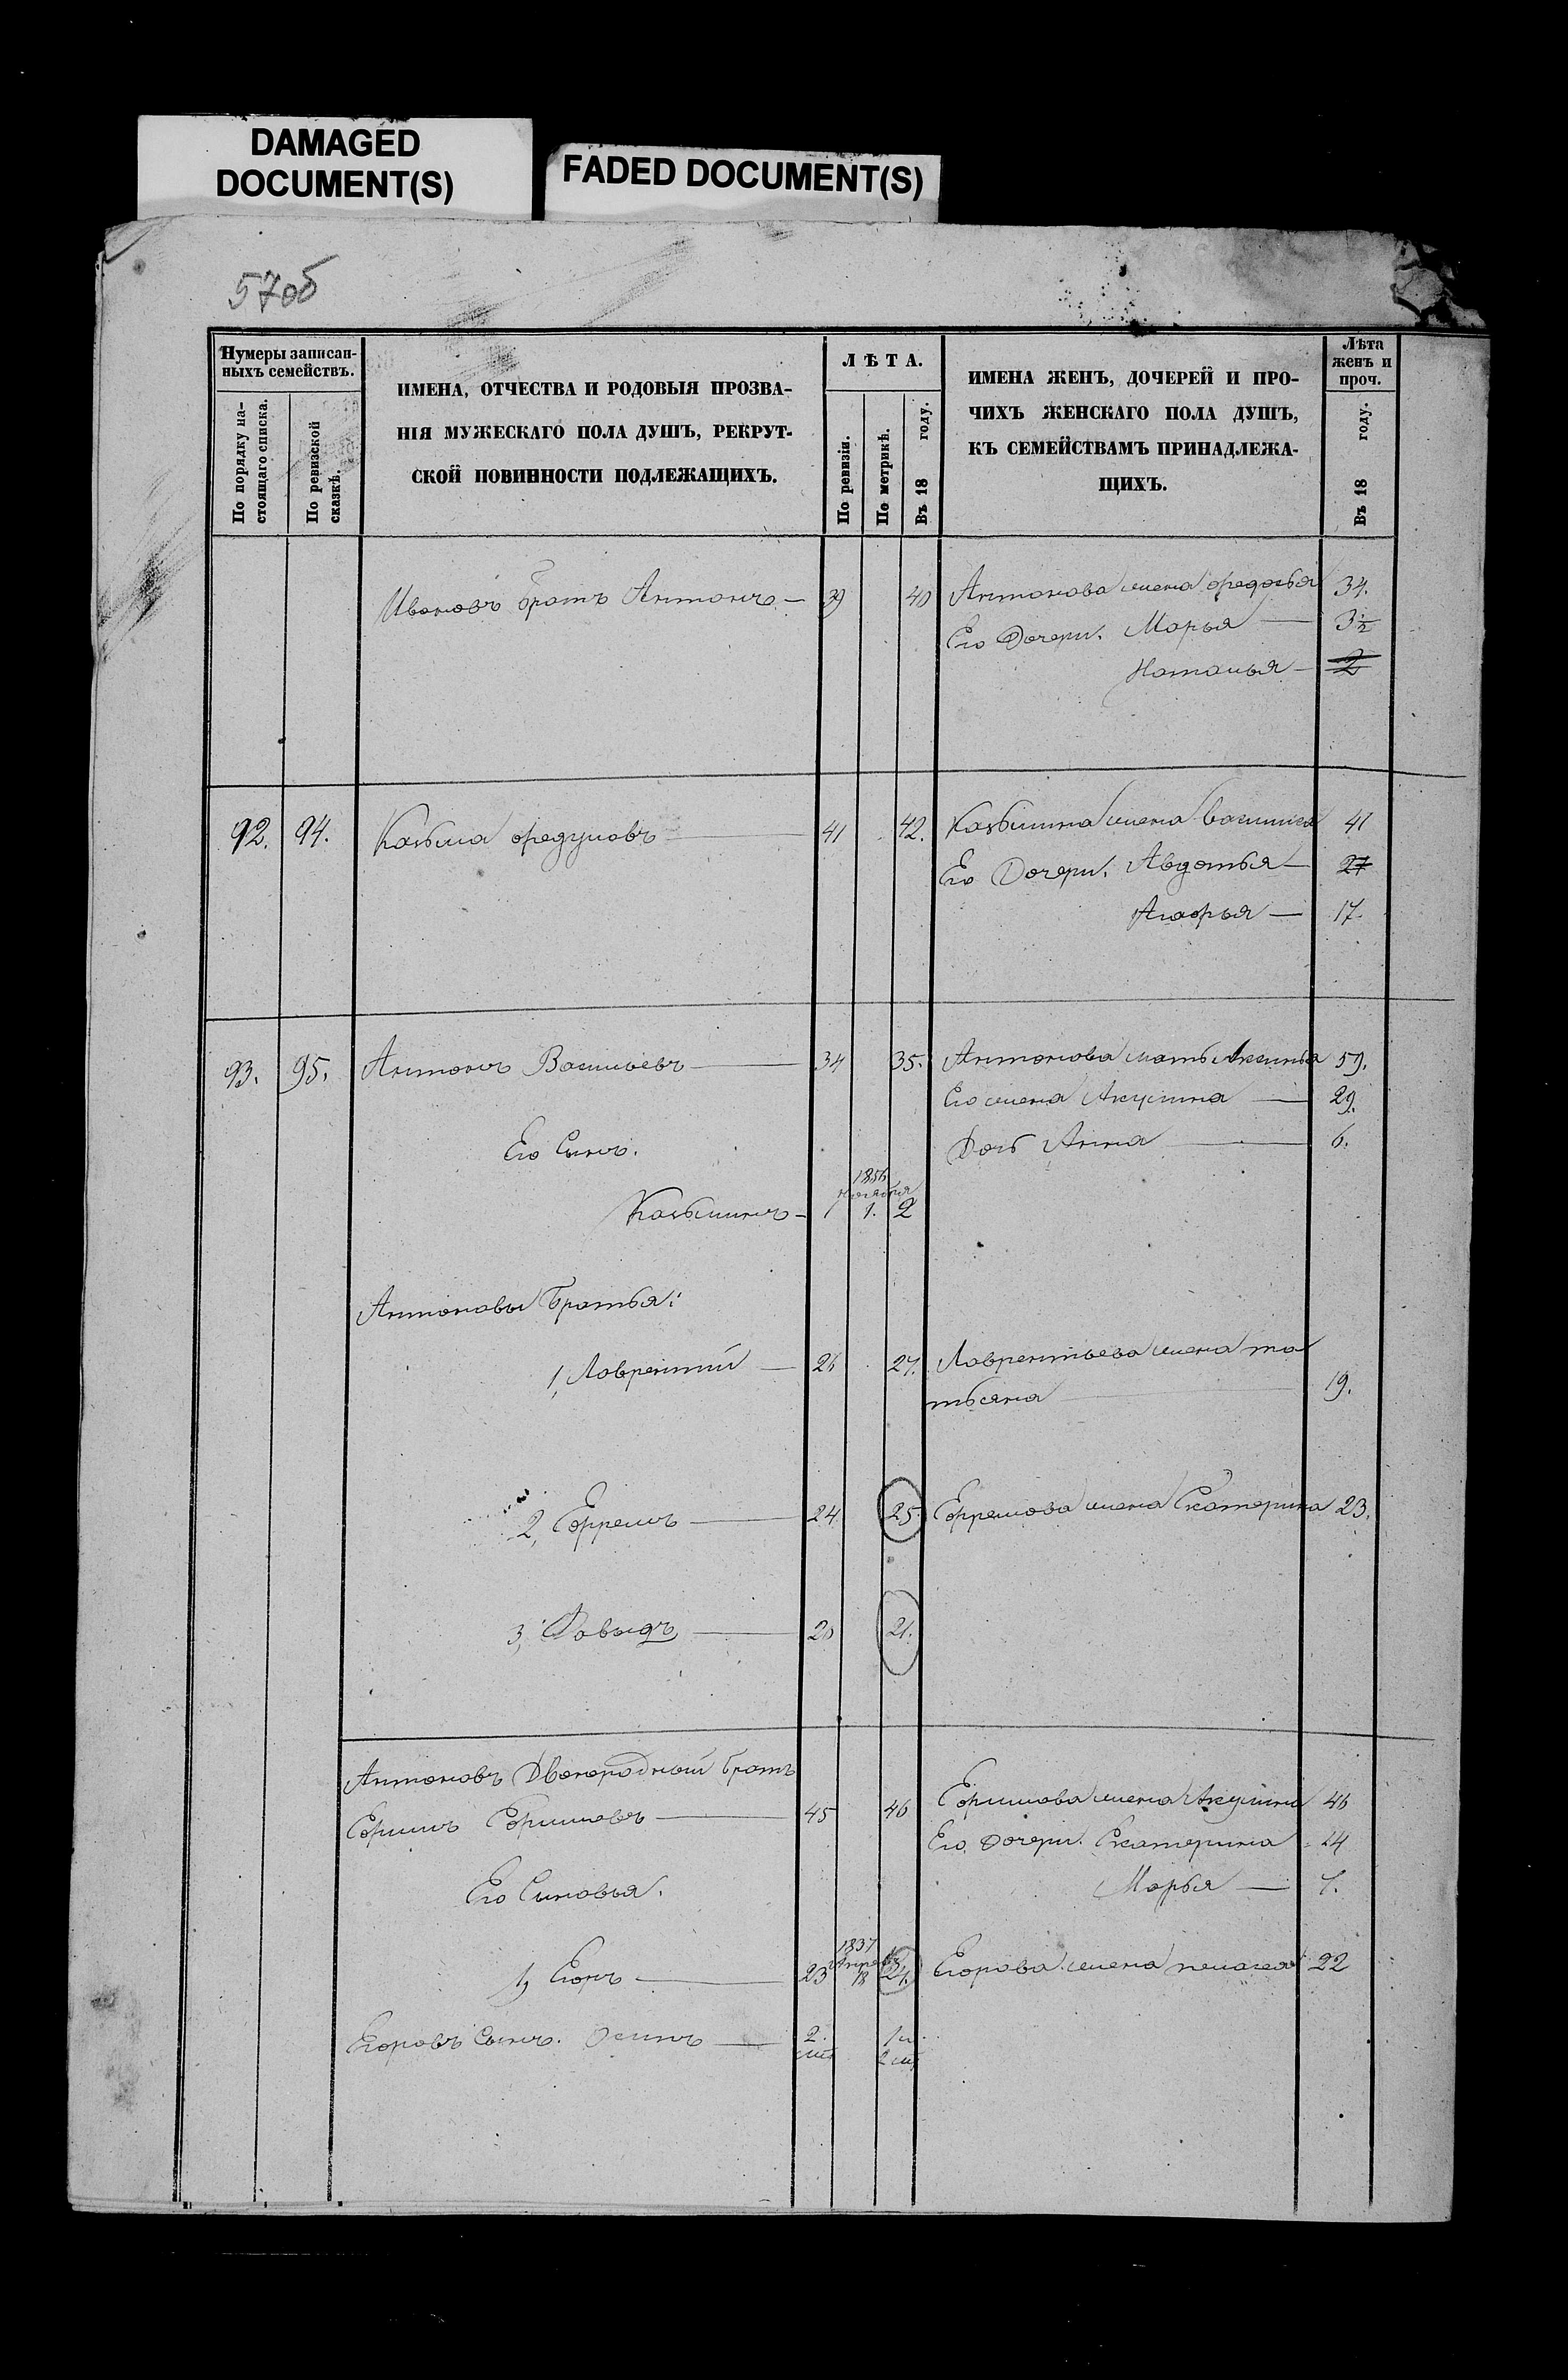 DAMAGED
DOCUMENT(S)
FADED DOCUMENT(S)
57об
Нумеры записан-
ныхъ семействъ.
По порядку на-
стоящаго списка.
По ревизской
сказкѣ.
ИМЕНА, ОТЧЕСТВА И РОДОВЫЯ ПРОЗВА-
НІЯ МУЖЕСКАГО ПОЛА ДУШЪ, РЕКРУТ-
СКОЙ ПОВИННОСТИ ПОДЛЕЖАЩИХЪ.
ЛѢТА.
По ревизіи.
По метрикѣ.
Въ 18 году.
ИМЕНА ЖЕНЪ, ДОЧЕРЕЙ И ПРО-
ЧИХЪ ЖЕНСКАГО ПОЛА ДУШЪ,
КЪ СЕМЕЙСТВАМЪ ПРИНАДЛЕЖА-
ЩИХЪ.
Лѣта
женъ и
проч.
Въ 18 году.
Ивановъ братъ Антонъ — 39 40 Антонова жена Федосья 34.
Его Дочери. Марья — 3½
Наталья — 2
92. 94. Козьма Федуловъ — 41 42. Козьмина жена Василиса 41
Его Дочери. Авдотья — 27
Агафья — 17.
93. 95. Антонъ Васильевъ — 34 35. Антонова мать Аксинья 59.
Его жена Акулина — 29.
Его Сынъ. Дочь Анна — 6.
1856
Ноября
Козьминъ — 1 1. 2
Антоновы Братья:
1, Лаврентій — 26 27. Лаврентьева жена та
тьяна — 19.
2, Ефремъ — 24 25. Ефремова жена Екатерина 23.
3, Давыдъ — 20 21.
Антоновъ Двоюродный братъ
Ефимъ Ефимовъ — 45 46 Ефимова жена Акулина 46
Его дочери. Екатерина 14
Его Сыновья. Марья — 7.
1837
Апреля
1, Егоръ — 23 18 24. Егорова жена пелагея 22
Егоровъ Сынъ. Осипъ — 2. 1 и
мѣс 2 мѣс